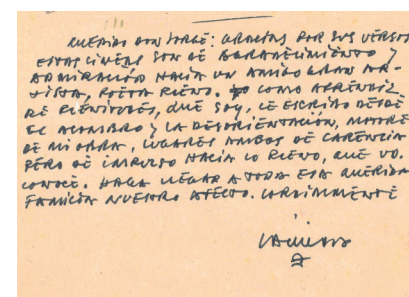 QUERIDO DON JORGE: GRACIAS POR SUS VERSOS
ESTAS LINEAS SON DE AGRADECIMIENTO Y
ADMIRACIÓN HACIA UN AMIGO GRAN AR-
TISTA, POETA PLENO. YO COMO APRENDIZ
DE PLENITUDES, QUE SOY, LE ESCRIBO DESDE
EL ASOMBRO Y LA DESORIENTACIÓN, MADRE
DE MI OBRA, LUGARES AMBOS DE CARENCIA
PERO DE IMPULSO HACIA LO PLENO, QUE VD.
CONOCE. HAGA LLEGAR A TODA ESA QUERIDA
FAMILIA NUESTRO AFECTO. CORDIALMENTE